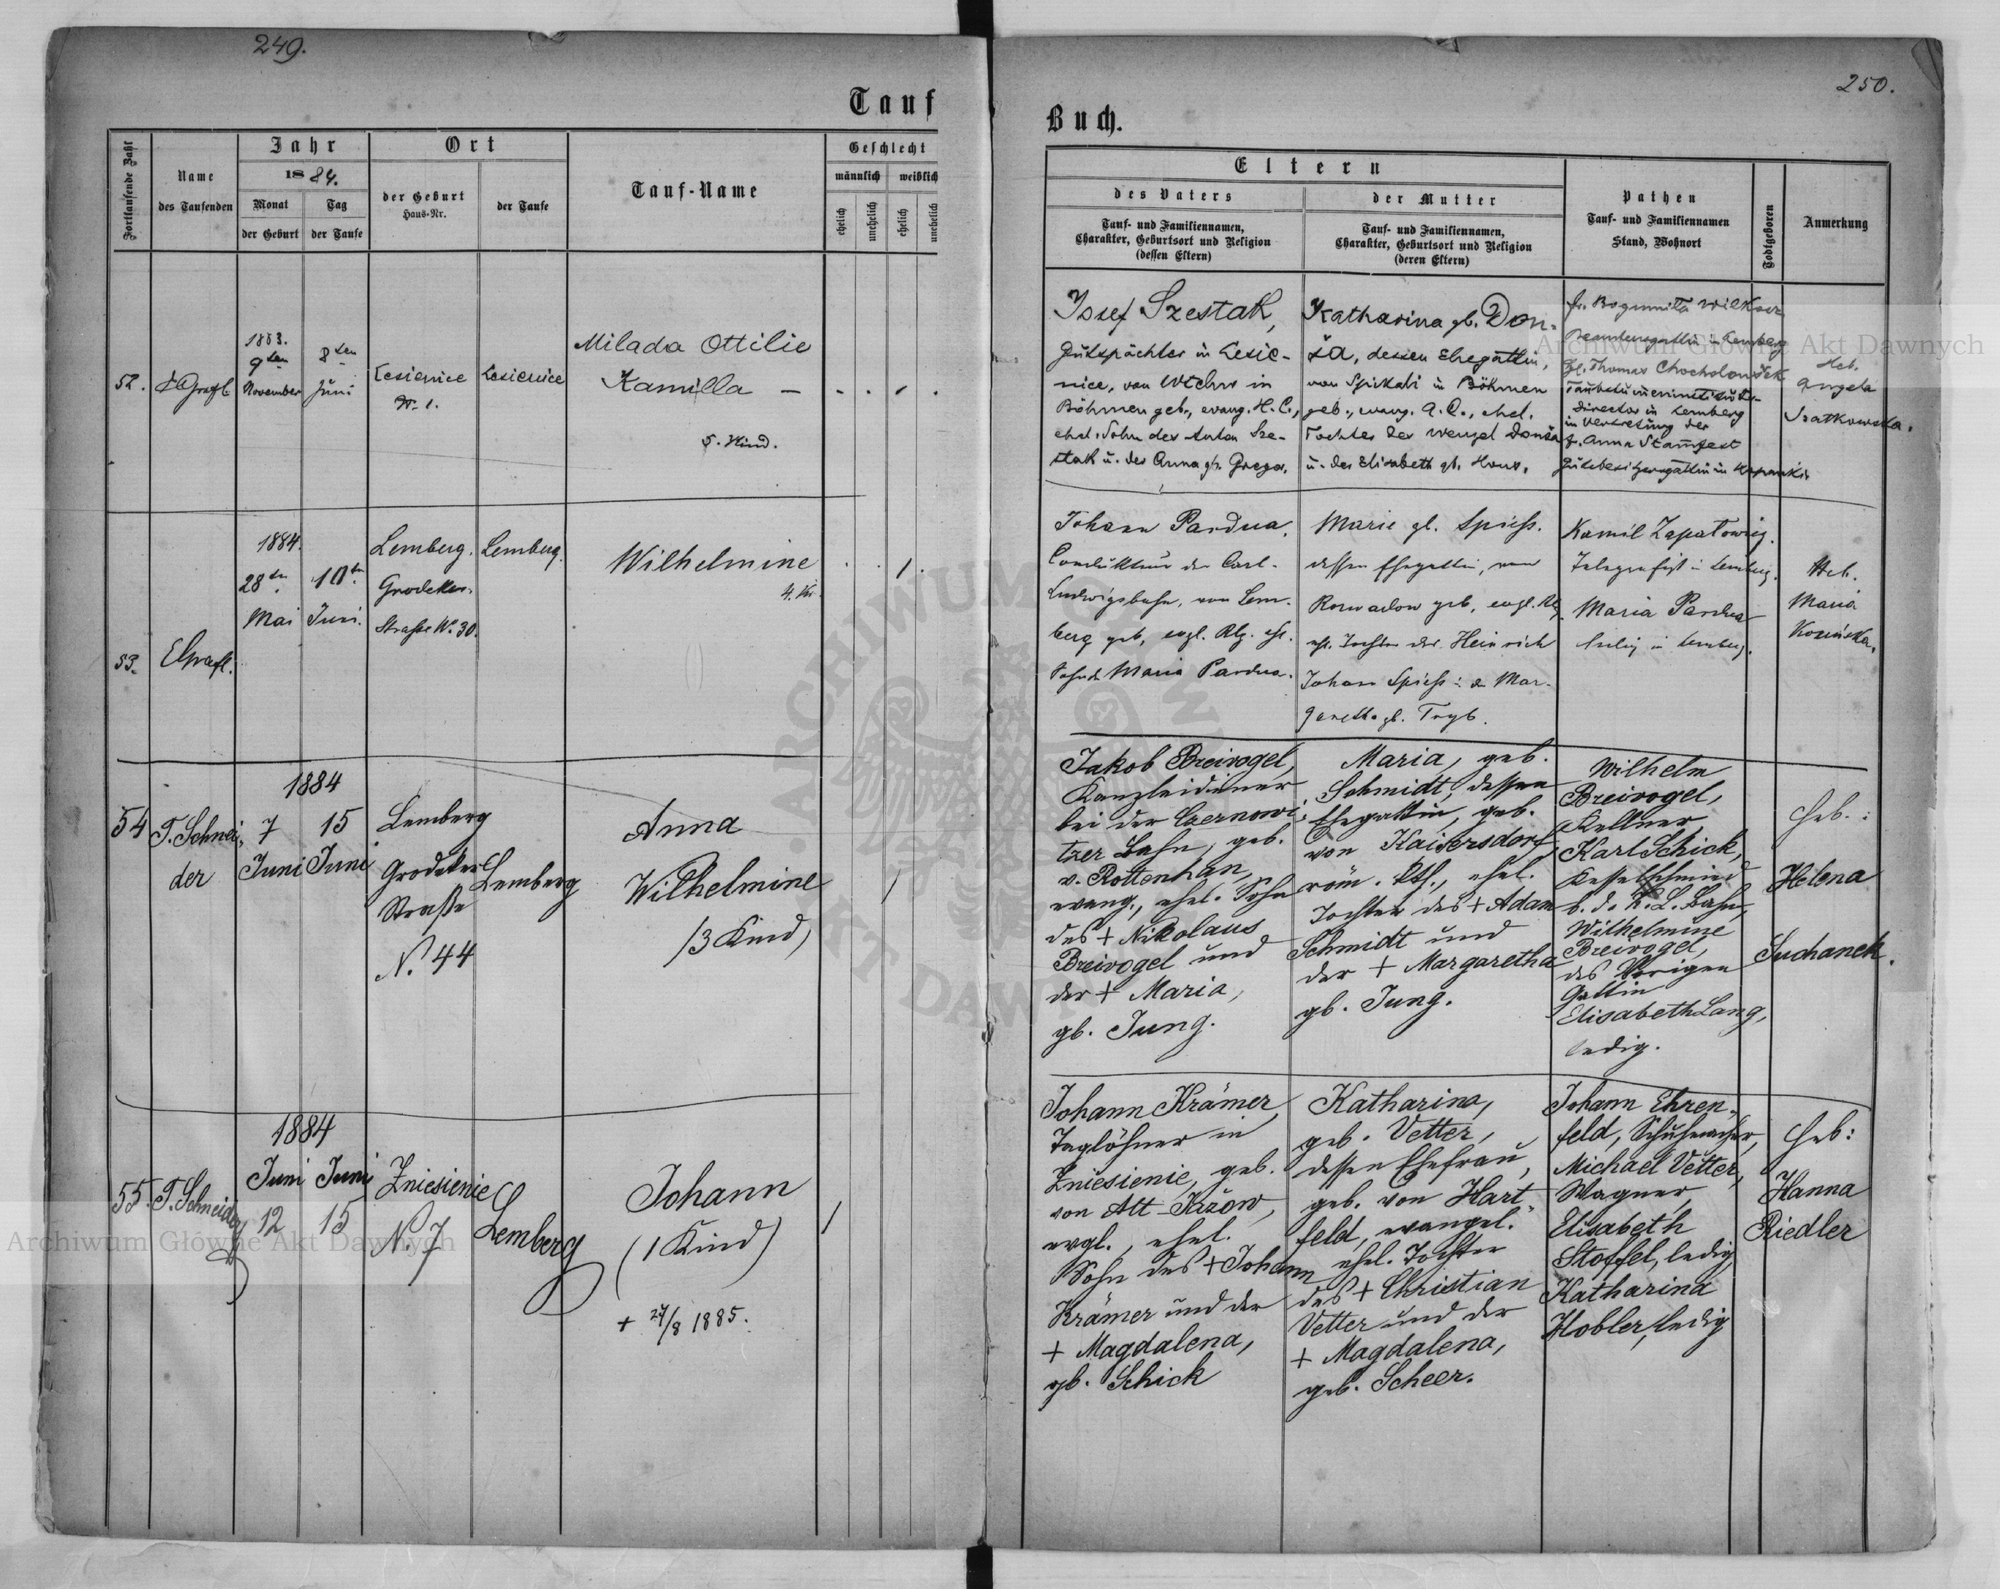 249.
Tauf
Fortlaufende Zahl
Name
des Taufenden
Jahr
1884.
Monat
der Geburt
Tag
der Taufe
Ort
der Geburt
Haus-Nr.
der Taufe
Tauf-Name
Geschlecht
männlich
weiblich
ehelich
unehelich
ehelich
unehelich
52.
1883.
9ten
November
8ten
Juni
Lesienice
Nr. 1.
Lesienice
Milada Ottilie
Kamilla —
5. Kind.
53.
1884.
28ten
Mai
10ten
Juni.
Lemberg.
Grodeker-
Straße No. 30.
Lemberg.
Wilhelmine
4. Ki.
54
T. Schnei-
der
1884
7
Juni
15
Juni
Lemberg
Grodeker
Straße
N. 44
Lemberg
Anna
Wilhelmine
/3 Kind)
55.
T. Schneider
1884
Juni
12
Juni
15
Zniesienie
N. 7
Lemberg
Johann
(1 Kind)
+ 27/8 1885.
250.
Buch.
Eltern
des Vaters
Tauf- und Familiennamen,
Charakter, Geburtsort und Religion
(dessen Eltern)
der Mutter
Tauf- und Familiennamen,
Charakter, Geburtsort und Religion
(deren Eltern)
Pathen
Tauf- und Familiennamen
Stand, Wohnort
Todtgeboren
Anmerkung
Josef Szestak,
Gutspächter in Lesie-
nice, von in
Böhmen geb., evang. H. C.,
ehel. Sohn des Anton Sze-
stak u. der Anna gb. Gregor.
Katharina gb. Don-
ša, dessen Ehegattin,
von in Böhmen
geb., evang. A. C., ehel.
Tochter des Wenzel Donša
u. der Elisabeth gb.
Fr. Bogumilla
Beamtensgattin in Lemberg
H. Thomas
Taubstummeninstituts-
Director in Lemberg
in Vertretung der
Fr. Anna
Gutsbesitzersgattin in
Heb.
Angela
Szatkowska.
Johann Pardua,
Condukteur der Carl-
Ludwigsbahn, von Lem-
berg geb., evgl. Rlg. ehl.
Sohn d. Maria Pardua.
Marie gb. Spiess.
dessen Ehegattin, von
Rozwadow geb., evgl. Rlg.
ehl. Tochter des Heinrich
Johann Spiess u. der Mar-
garetha gb. Tryb.
Kamil Zapatowicz.
Telegrafist in Lemberg.
Maria Pardua
ledig in Lemberg.
Heb.
Maria
Kozińska.
Jakob Breivogel,
Kanzleidiener
bei der Czernowi-
tzer Bahn, geb.
v. Rottenhan,
evang., ehel. Sohn
des + Nikolaus
Breivogel und
der + Maria,
gb. Jung.
Maria, geb.
Schmidt, dessen
Ehegattin, geb.
von Kaisersdorf,
röm. kth., ehel.
Tochter des + Adam
Schmidt und
der + Margaretha
gb. Jung.
Wilhelm
Breivogel,
Kellner,
Karl Schick,
Kesselschmied
b. d. K. L. Bahn,
Wilhelmine
Breivogel,
des Vorigen
Gattin
Elisabeth Lang,
ledig.
Heb.:
Helena
Suchanek.
Johann Krämer,
Taglöhner in
Zniesienie, geb.
von Alt-Jazow,
evgl., ehel.
Sohn des + Johann
Krämer und der
+ Magdalena,
gb. Schick
Katharina,
geb. Vetter,
dessen Ehefrau,
geb. von Hart-
feld, evangel.
ehel. Tochter
des + Christian
Vetter und der
+ Magdalena,
geb. Scheer.
Johann Ehren-
feld, Schuhmacher,
Michael Vetter,
Wagner,
Elisabeth
Stoffel, ledig
Katharina
Hobler, ledig
Heb:
Hanna
Riedler
Archiwum Główne Akt Dawnych
Archiwum Główne Akt Dawnych